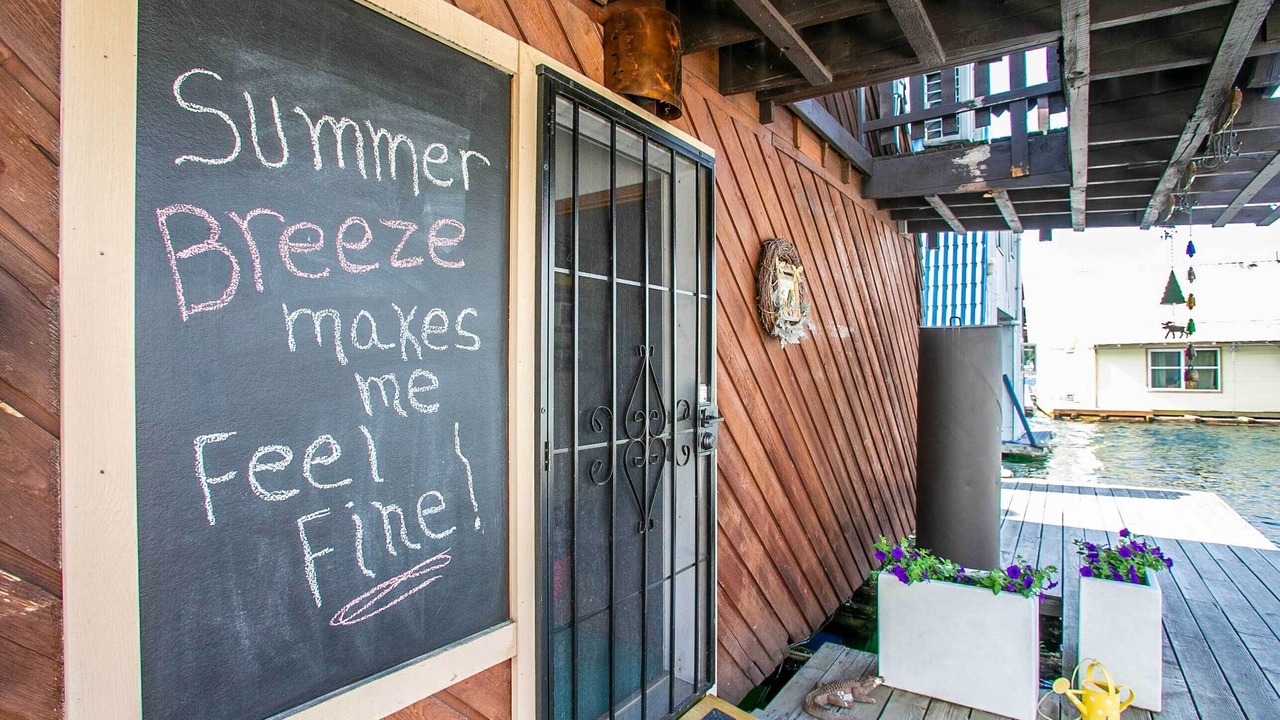 Summer
Breeze
makes
me
Feel
Fine!